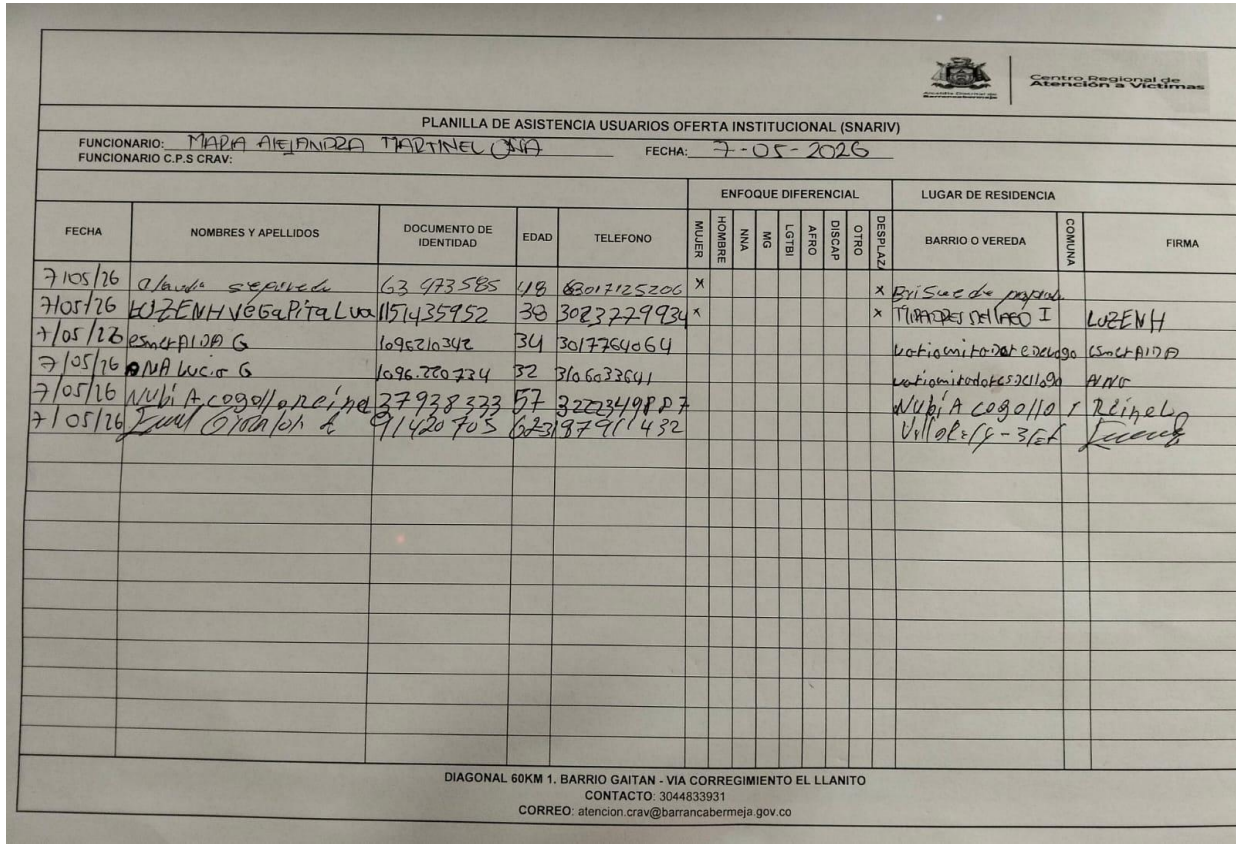 Alcaldía Distrital de
Barrancabermeja
Centro Regional de
Atención a Víctimas
PLANILLA DE ASISTENCIA USUARIOS OFERTA INSTITUCIONAL (SNARIV)
FUNCIONARIO: MARIA ALEJANDRA FECHA: 7-05-2026
FUNCIONARIO C.P.S CRAV:
ENFOQUE DIFERENCIAL LUGAR DE RESIDENCIA
FECHA NOMBRES Y APELLIDOS DOCUMENTO DE IDENTIDAD EDAD TELEFONO MUJER HOMBRE NNA MG LGTBI AFRO DISCAP OTRO DESPLAZ BARRIO O VEREDA COMUNA FIRMA
7/05/26 63 473585 48 x x
7/05/26 LUZENH VEGA PITALUA 1151435952 38 3023779934 x x MIRADORES DEL I LUZENH
7/05/26 esmerAlDA G 1096210342 34 3017764064 esmerAlDA
7/05/26 ANA Lucia G 1096.220734 32 3106033641 ANA
7/05/26 NubiA cogollo Reina 37938373 57 NubiA cogollo r
7/05/26 91420705 62 3187911432
DIAGONAL 60KM 1. BARRIO GAITAN - VIA CORREGIMIENTO EL LLANITO
CONTACTO: 3044833931
CORREO: atencion.crav@barrancabermeja.gov.co